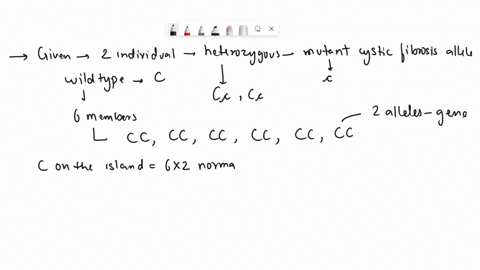 → Given → 2 individual → heterozygous – mutant cystic fibrosis allele
wild type → C
Cc , Cc
c
6 members
CC, CC, CC, CC, CC, CC
2 alleles – gene
C on the island = 6x2 norma